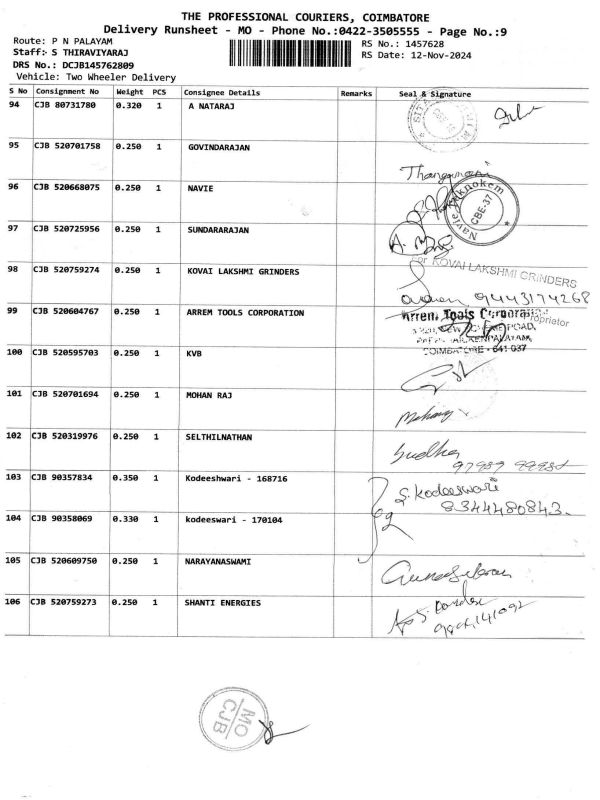 THE PROFESSIONAL COURIERS, COIMBATORE
Delivery Runsheet - MO - Phone No.:0422-3505555 - Page No.:9
Route: P N PALAYAM
RS No.: 1457628
Staff:- S THIRAVIYARAJ
RS Date: 12-Nov-2024
DRS No.: DCJB145762809
Vehicle: Two Wheeler Delivery
S No Consignment No Weight PCS Consignee Details Remarks Seal & Signature
94 CJB 80731780 0.320 1 A NATARAJ
95 CJB 520701758 0.250 1 GOVINDARAJAN
96 CJB 520668075 0.250 1 NAVIE
Navie Teknokem
CBE-37
97 CJB 520725956 0.250 1 SUNDARARAJAN
98 CJB 520759274 0.250 1 KOVAI LAKSHMI GRINDERS
For KOVAI LAKSHMI GRINDERS
9443174268
Proprietor
99 CJB 520604767 0.250 1 ARREM TOOLS CORPORATION
Arrem Tools Corporation
ROAD,
COIMBATORE - 641 037
100 CJB 520595703 0.250 1 KVB
101 CJB 520701694 0.250 1 MOHAN RAJ
102 CJB 520319976 0.250 1 SELTHILNATHAN
Sudha
103 CJB 90357834 0.350 1 Kodeeshwari - 168716
S. Kodeeswari
8344480843.
104 CJB 90358069 0.330 1 kodeeswari - 170104
105 CJB 520609750 0.250 1 NARAYANASWAMI
106 CJB 520759273 0.250 1 SHANTI ENERGIES
MO
CJB